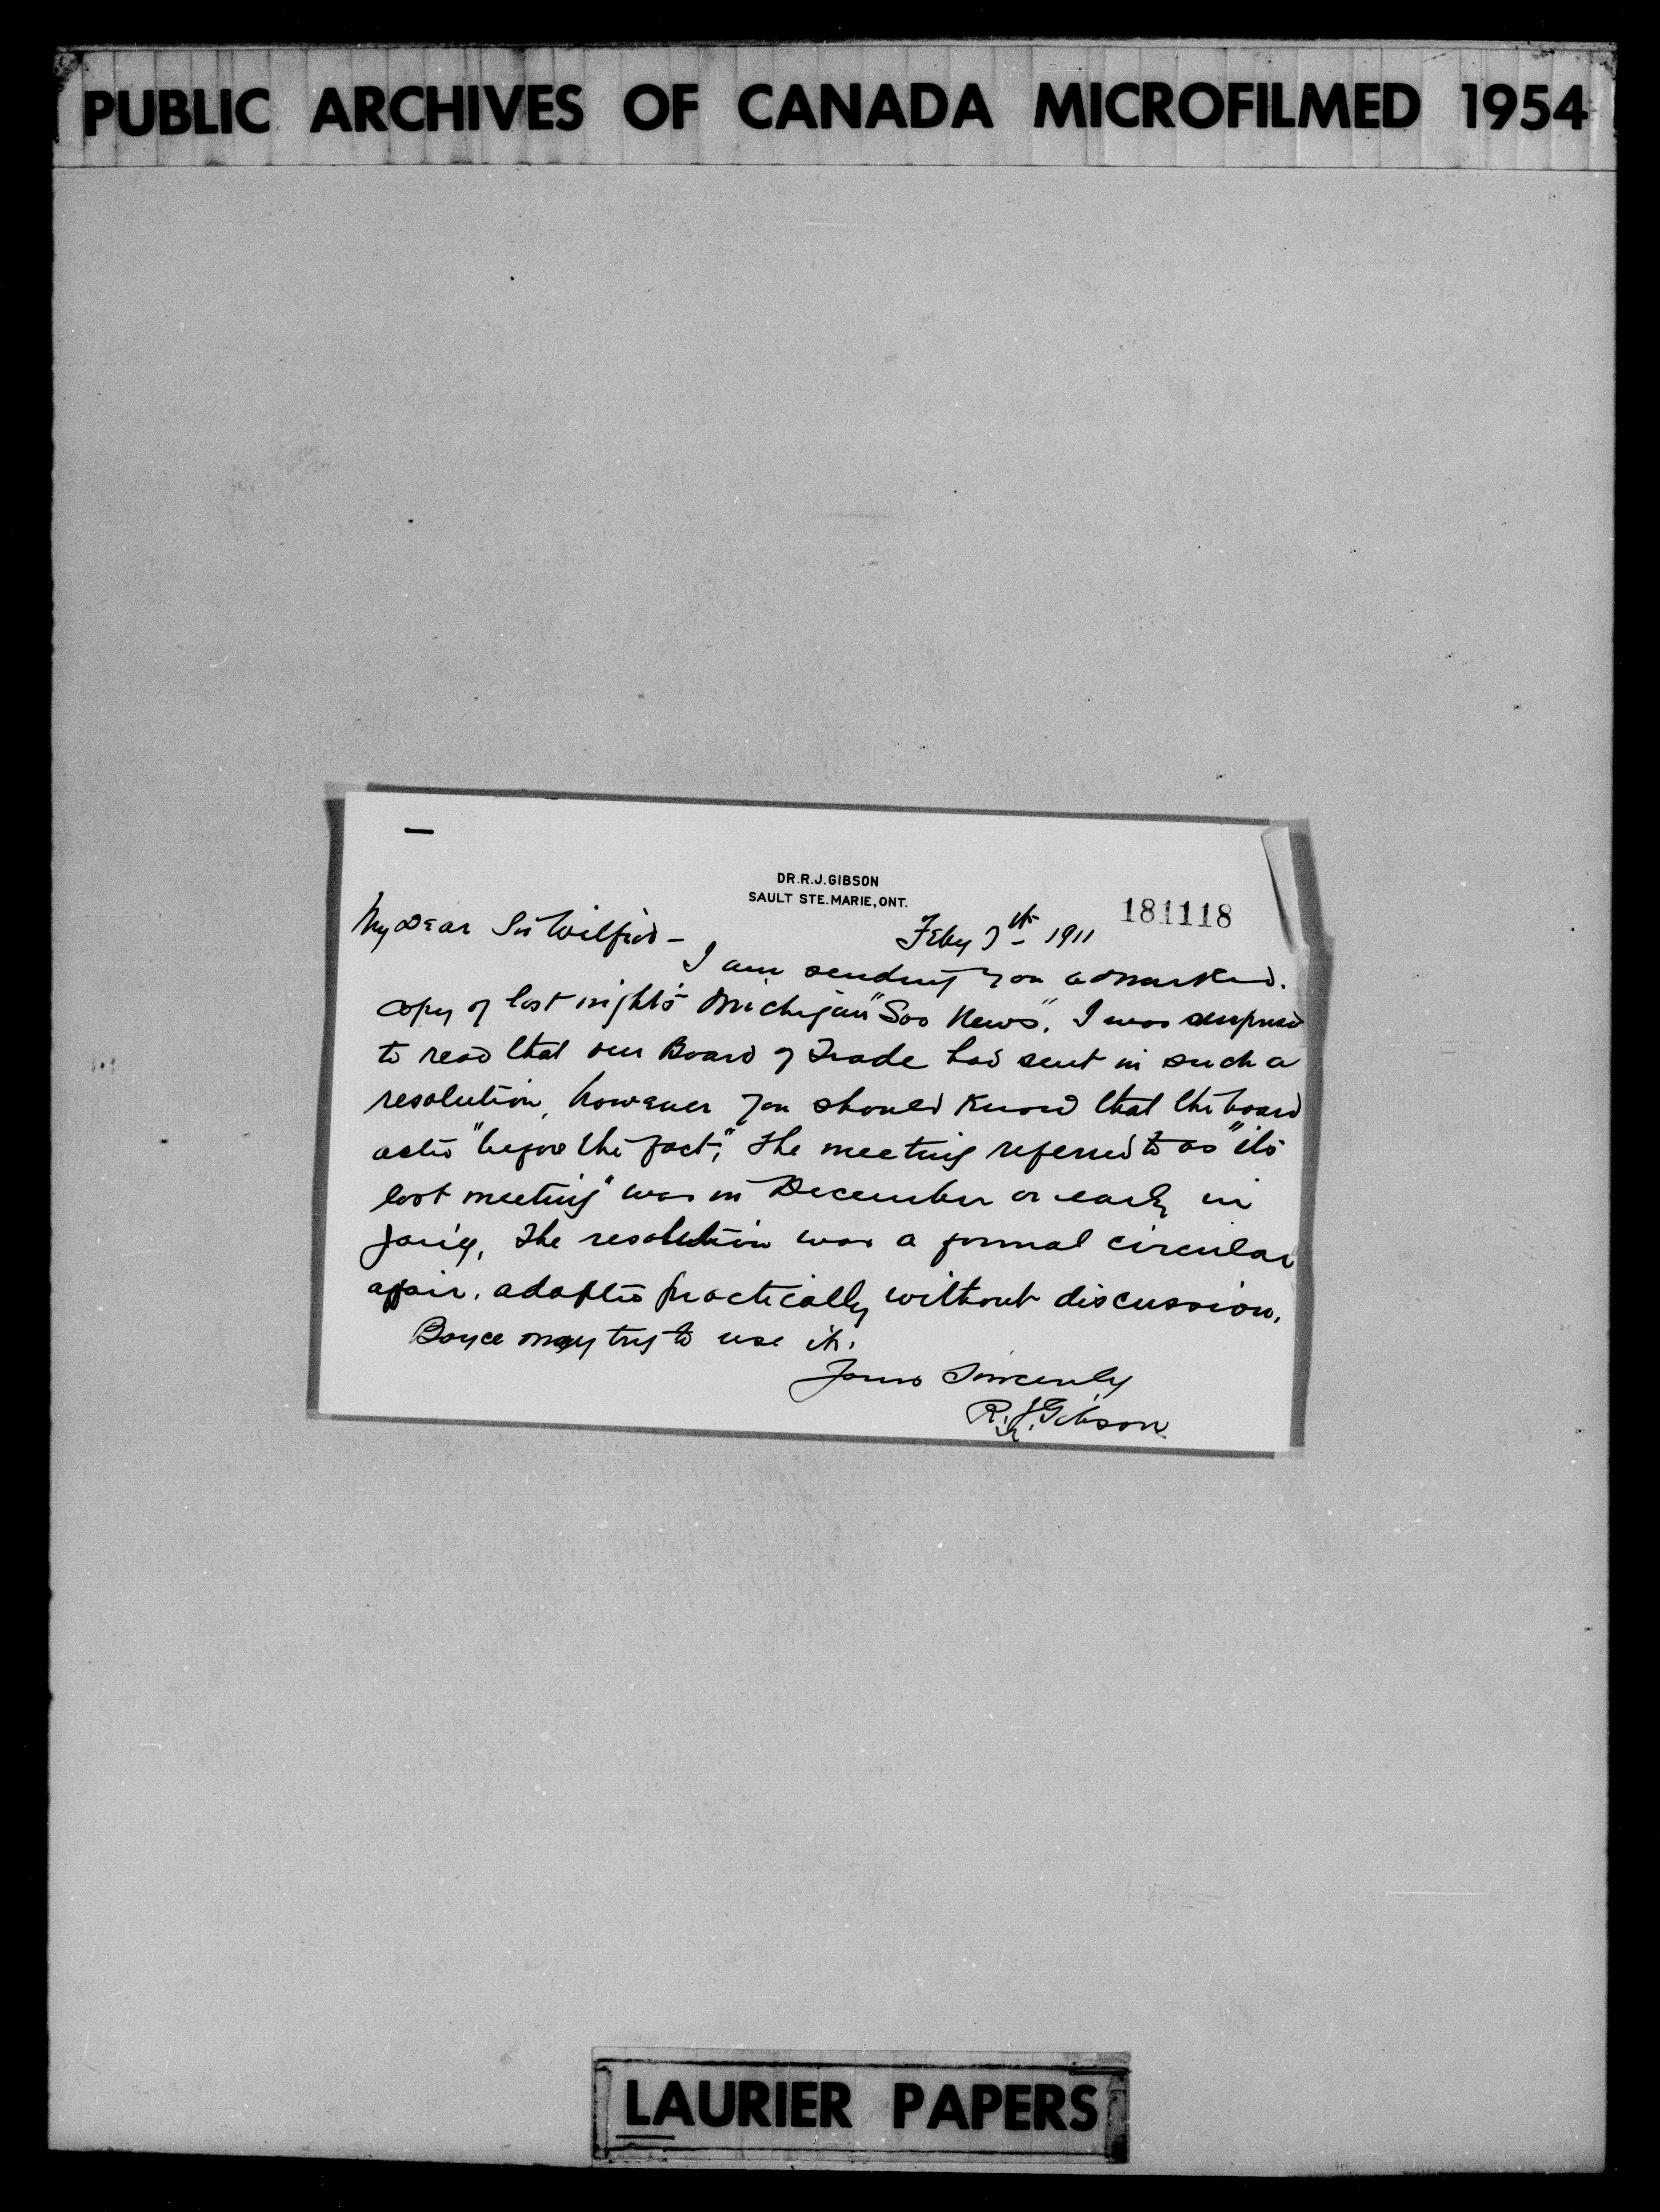 PUBLIC ARCHIVES OF CANADA MICROFILMED 1954
DR. R. J. GIBSON
SAULT STE. MARIE, ONT.
181118
Feby 7th 1911
My Dear Sir Wilfrid -
I am sending you a marked
copy of last night's Michigan "Soo News". I was surprised
to read that our Board of Trade had sent in such a
resolution, however you should know that the board
acted "before the fact"; the meeting referred to as "its
last meeting" was in December or early in
Jan'y, The resolution was a formal circular
affair, adopted practically without discussion.
Boyce may try to use it.
Yours Sincerely
R. J. Gibson
LAURIER PAPERS